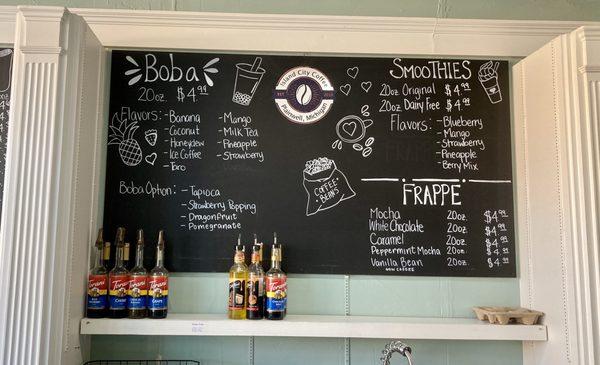 Boba
20oz $4.99
Flavors: -Banana
-Coconut
-Honeydew
-Ice Coffee
-Taro
-Mango
-Milk Tea
-Pineapple
-Strawberry
Boba Option: -Tapioca
-Strawberry Popping
-Dragonfruit
-Pomegranate
Island City Coffee
EST
Plainwell, Michigan
COFFEE
BEANS
SMOOTHIES
20oz Original $4.99
20oz Dairy Free $4.99
Flavors: -Blueberry
-Mango
-Strawberry
-Pineapple
-Berry Mix
FRAPPE
Mocha 20oz $4.99
White Chocolate 20oz $4.99
Caramel 20oz $4.99
Peppermint Mocha 20oz $4.99
Vanilla Bean 20oz $4.99
NON COFFEE
Torani
Torani
Torani
Torani
Torani